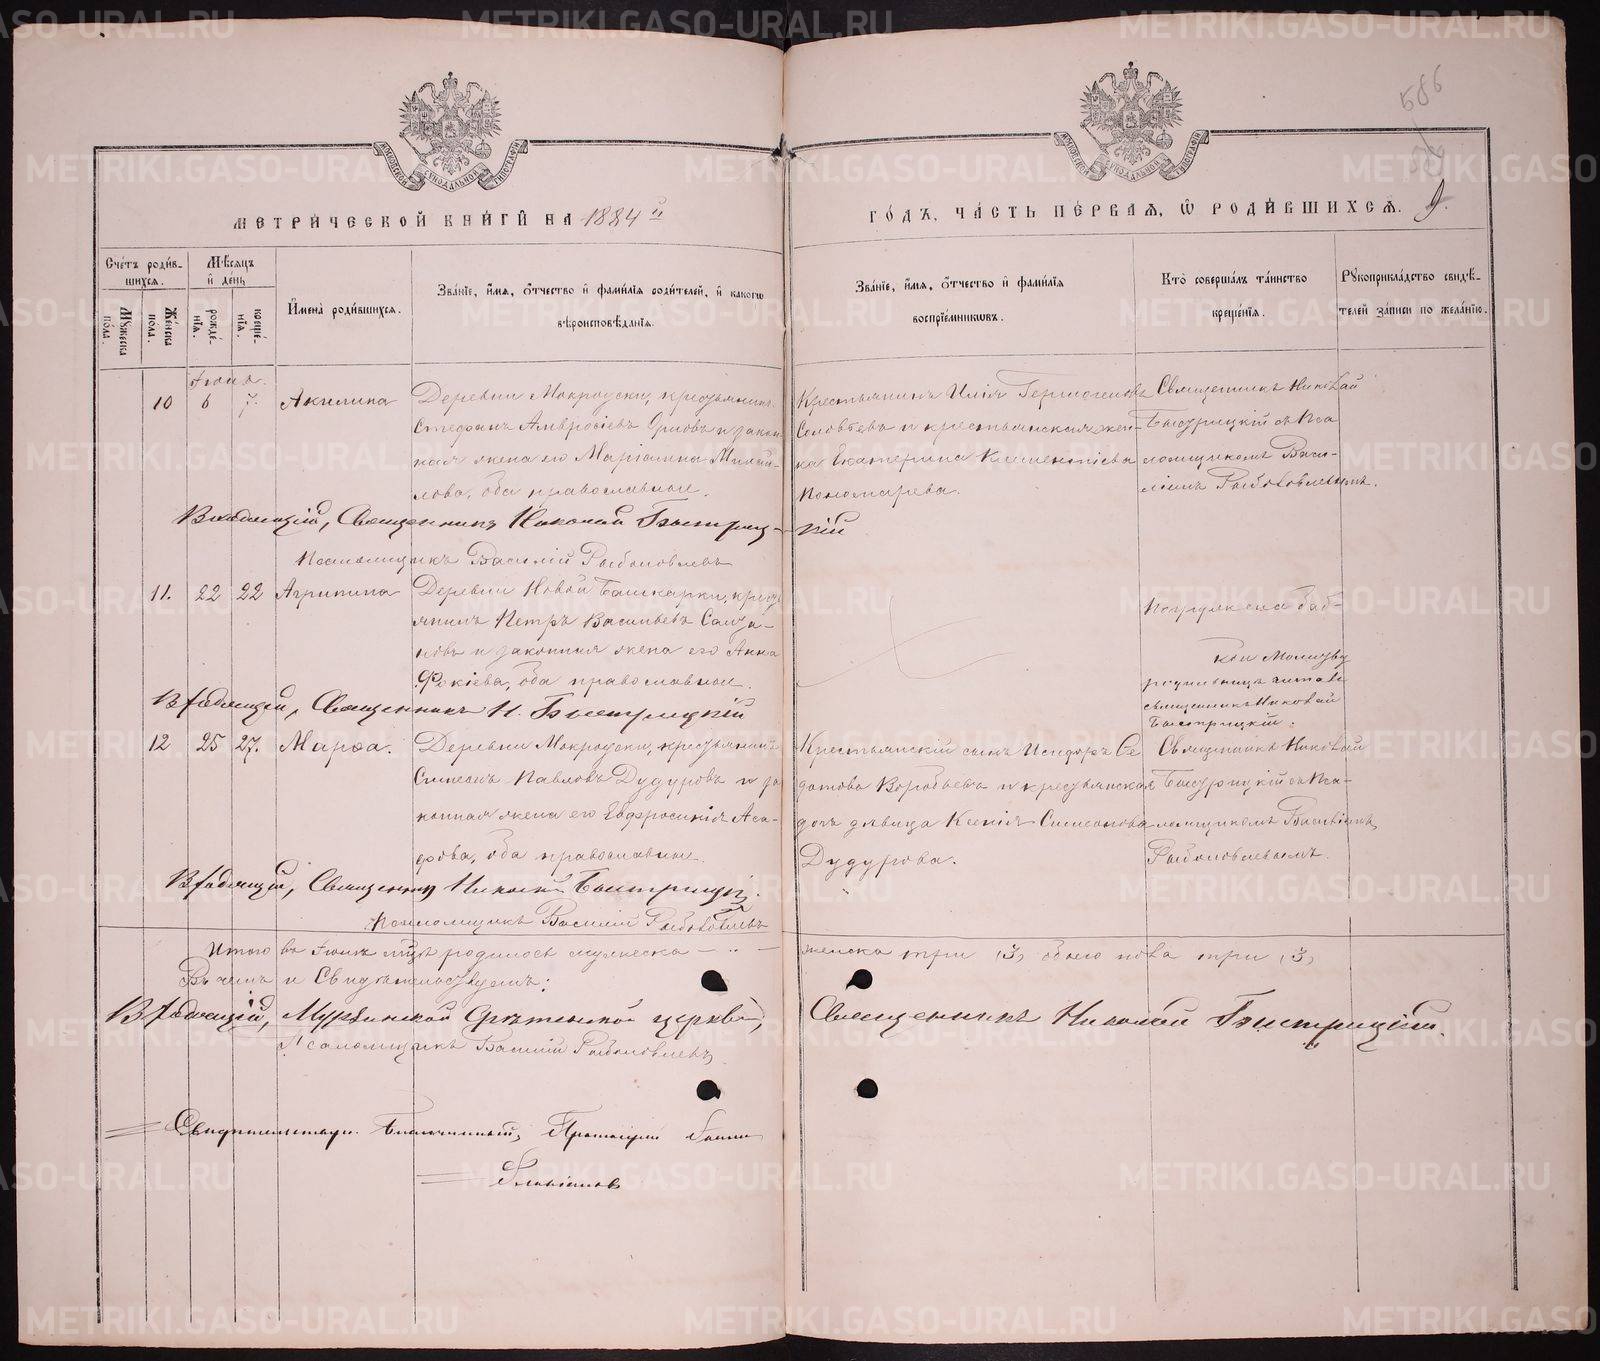 МЕТРИЧЕСКОЙ КНИГИ НА 1884 й
ГОДЪ, ЧАСТЬ ПЕРВАЯ, Ѡ РОДИВШИХСЯ.
586
Счетъ родив-
шихся.
Мужеска пола.
Женска пола.
Мѣсяцъ
и день
рожде-
нія.
креще-
нія.
Имена родившихся.
Званіе, имя, отчество и фамилія родителей, и какого
вѣроисповѣданія.
Званіе, имя, отчество и фамилія
воспріемниковъ.
Кто совершалъ таинство
крещенія.
Рукоприкладство свидѣ-
телей записи по желанію.
Іюня.
10 6 7. Акилина
Деревни Мокроуски, крестьянинъ
Стефанъ Амвросіевъ и закон-
ная жена его Маріамна Михай-
лова, оба православные.
Крестьянинъ Илія Гермогеновъ
Соловьевъ и крестьянская жен-
ка Екатерина Климентіева
Пономарева.
Священникъ Николай
Быстрицкій съ Пса-
ломщикомъ Васи-
ліемъ Рыболовлевымъ.
Священникъ Николай Быстриц-
кій
Псаломщикъ Василій Рыболовлевъ
11. 22 22 Агрипина
Деревни Новой Башкарки, крест
янинъ Петръ Васильевъ
новъ и законная жена его Анна
Фокіева, оба православные.
Погружена баб-
кой Молитву
читалъ
священникъ Николай
Быстрицкій.
Священникъ Н. Быстрицкій
12 25 27. Марѳа.
Деревни Мокроуски, крестьянинъ
Симеонъ Павловъ Дудуровъ и за
конная жена его Евфросинія Аса-
фова, оба православные.
Крестьянскій сынъ Исидоръ Ѳе
дотовъ Воробьевъ и крестьянская
дочь дѣвица Ксенія Симеонова
Дудурова.
Священникъ Николай
Быстрицкій съ Пса-
ломщикомъ Василіемъ
Рыболовлевымъ.
Священникъ Николай Быстрицкій.
Псаломщикъ Василій Рыболовлевъ
Итого въ Іюнѣ мцѣ родилось мужеска — " —
женска три (3) обоего пола три (3)
Въ чемъ и Свидѣтельствуемъ:
Мурзинской Срѣтенской церкви,
Священникъ Николай Быстрицкій.
Псаломщикъ Василій Рыболовлевъ
Благочинный, Протоіерей
METRIKI.GASO-URAL.RU